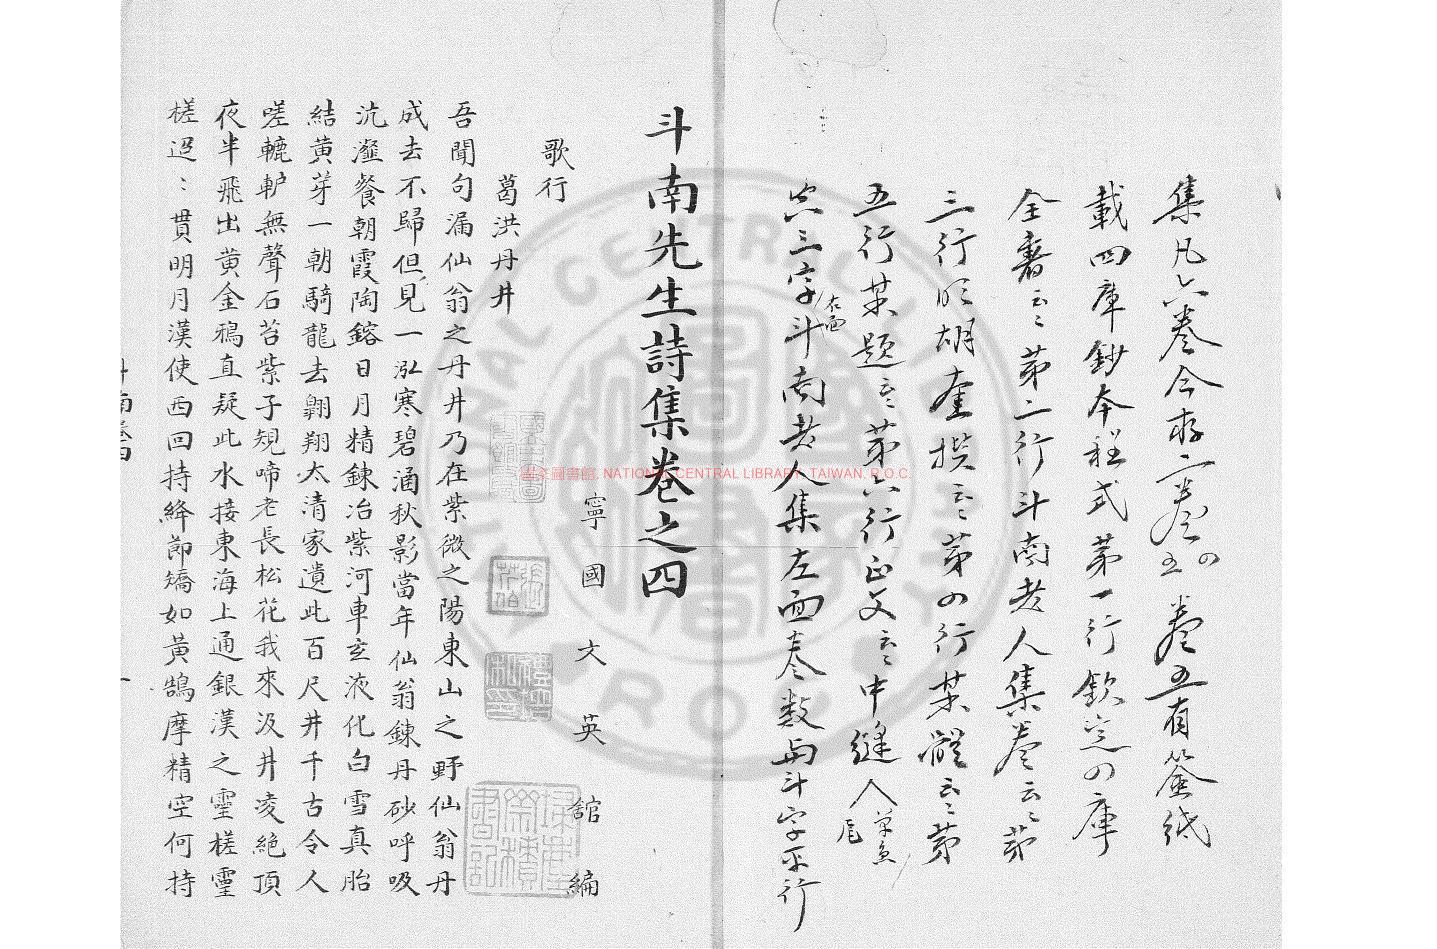 集凡六卷今存二卷四五卷五有簽紙
載四庫鈔本程式第一行欽定四庫
全書云云第二行斗南老人集卷云云第
三行明胡奎撰云云第四行某體云云第
五行某題云云第六行正文云云中縫入單魚尾
六三字斗南老人集左面卷數與斗字平行
右面
斗南先生詩集卷之四
寧國文英館編
歌行
葛洪丹井
吾聞句漏仙翁之丹井乃在紫微之陽東山之野仙翁丹
成去不歸但見一泓寒碧涵秋影當年仙翁鍊丹砂呼吸
沆瀣餐朝霞陶鎔日月精鍊冶紫河車玄液化白雪真胎
結黃芽一朝騎龍去翺翔太清家遺此百尺井千古令人
嗟轆轤無聲石苔紫子規啼老長松花我來汲井凌絕頂
夜半飛出黃金鴉直疑此水接東海上通銀漢之靈槎靈
槎迢〻貫明月漢使西回持絳節矯如黃鵠摩精空何持
國家圖書館, NATIONAL CENTRAL LIBRARY, TAIWAN, R.O.C.